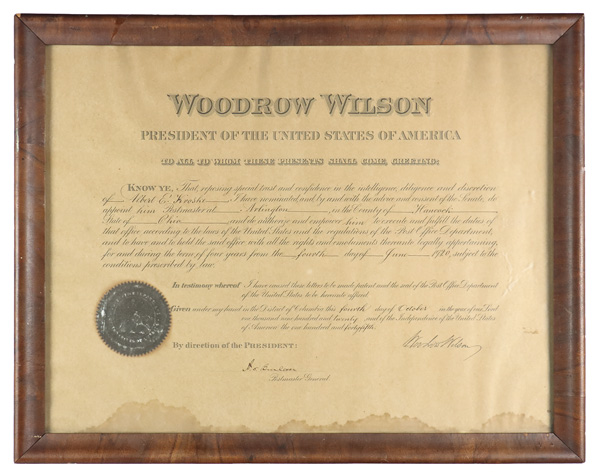 WOODROW WILSON
PRESIDENT OF THE UNITED STATES OF AMERICA
TO ALL TO WHOM THESE PRESENTS SHALL COME, GREETING:
KNOW YE, That, reposing special trust and confidence in the intelligence, diligence and discretion
of Albert E. I have nominated, and by and with the advice and consent of the Senate, do
appoint him Postmaster at Arlington in the County of Hancock
State of Ohio and do authorize and empower him to execute and fulfill the duties of
that office according to the laws of the United States and the regulations of the Post Office Department,
and to have and to hold the said office, with all the rights and emoluments thereunto legally appertaining,
for and during the term of four years from the fourth day of June 1920, subject to the
conditions prescribed by law.
In testimony whereof I have caused these letters to be made patent and the seal of the Post Office Department
of the United States to be hereunto affixed.
Given under my hand in the District of Columbia this fourth day of October in the year of our Lord
one thousand nine hundred and twenty and of the Independence of the United States
of America the one hundred and forty fifth.
By direction of the PRESIDENT:
Woodrow Wilson
Postmaster General.